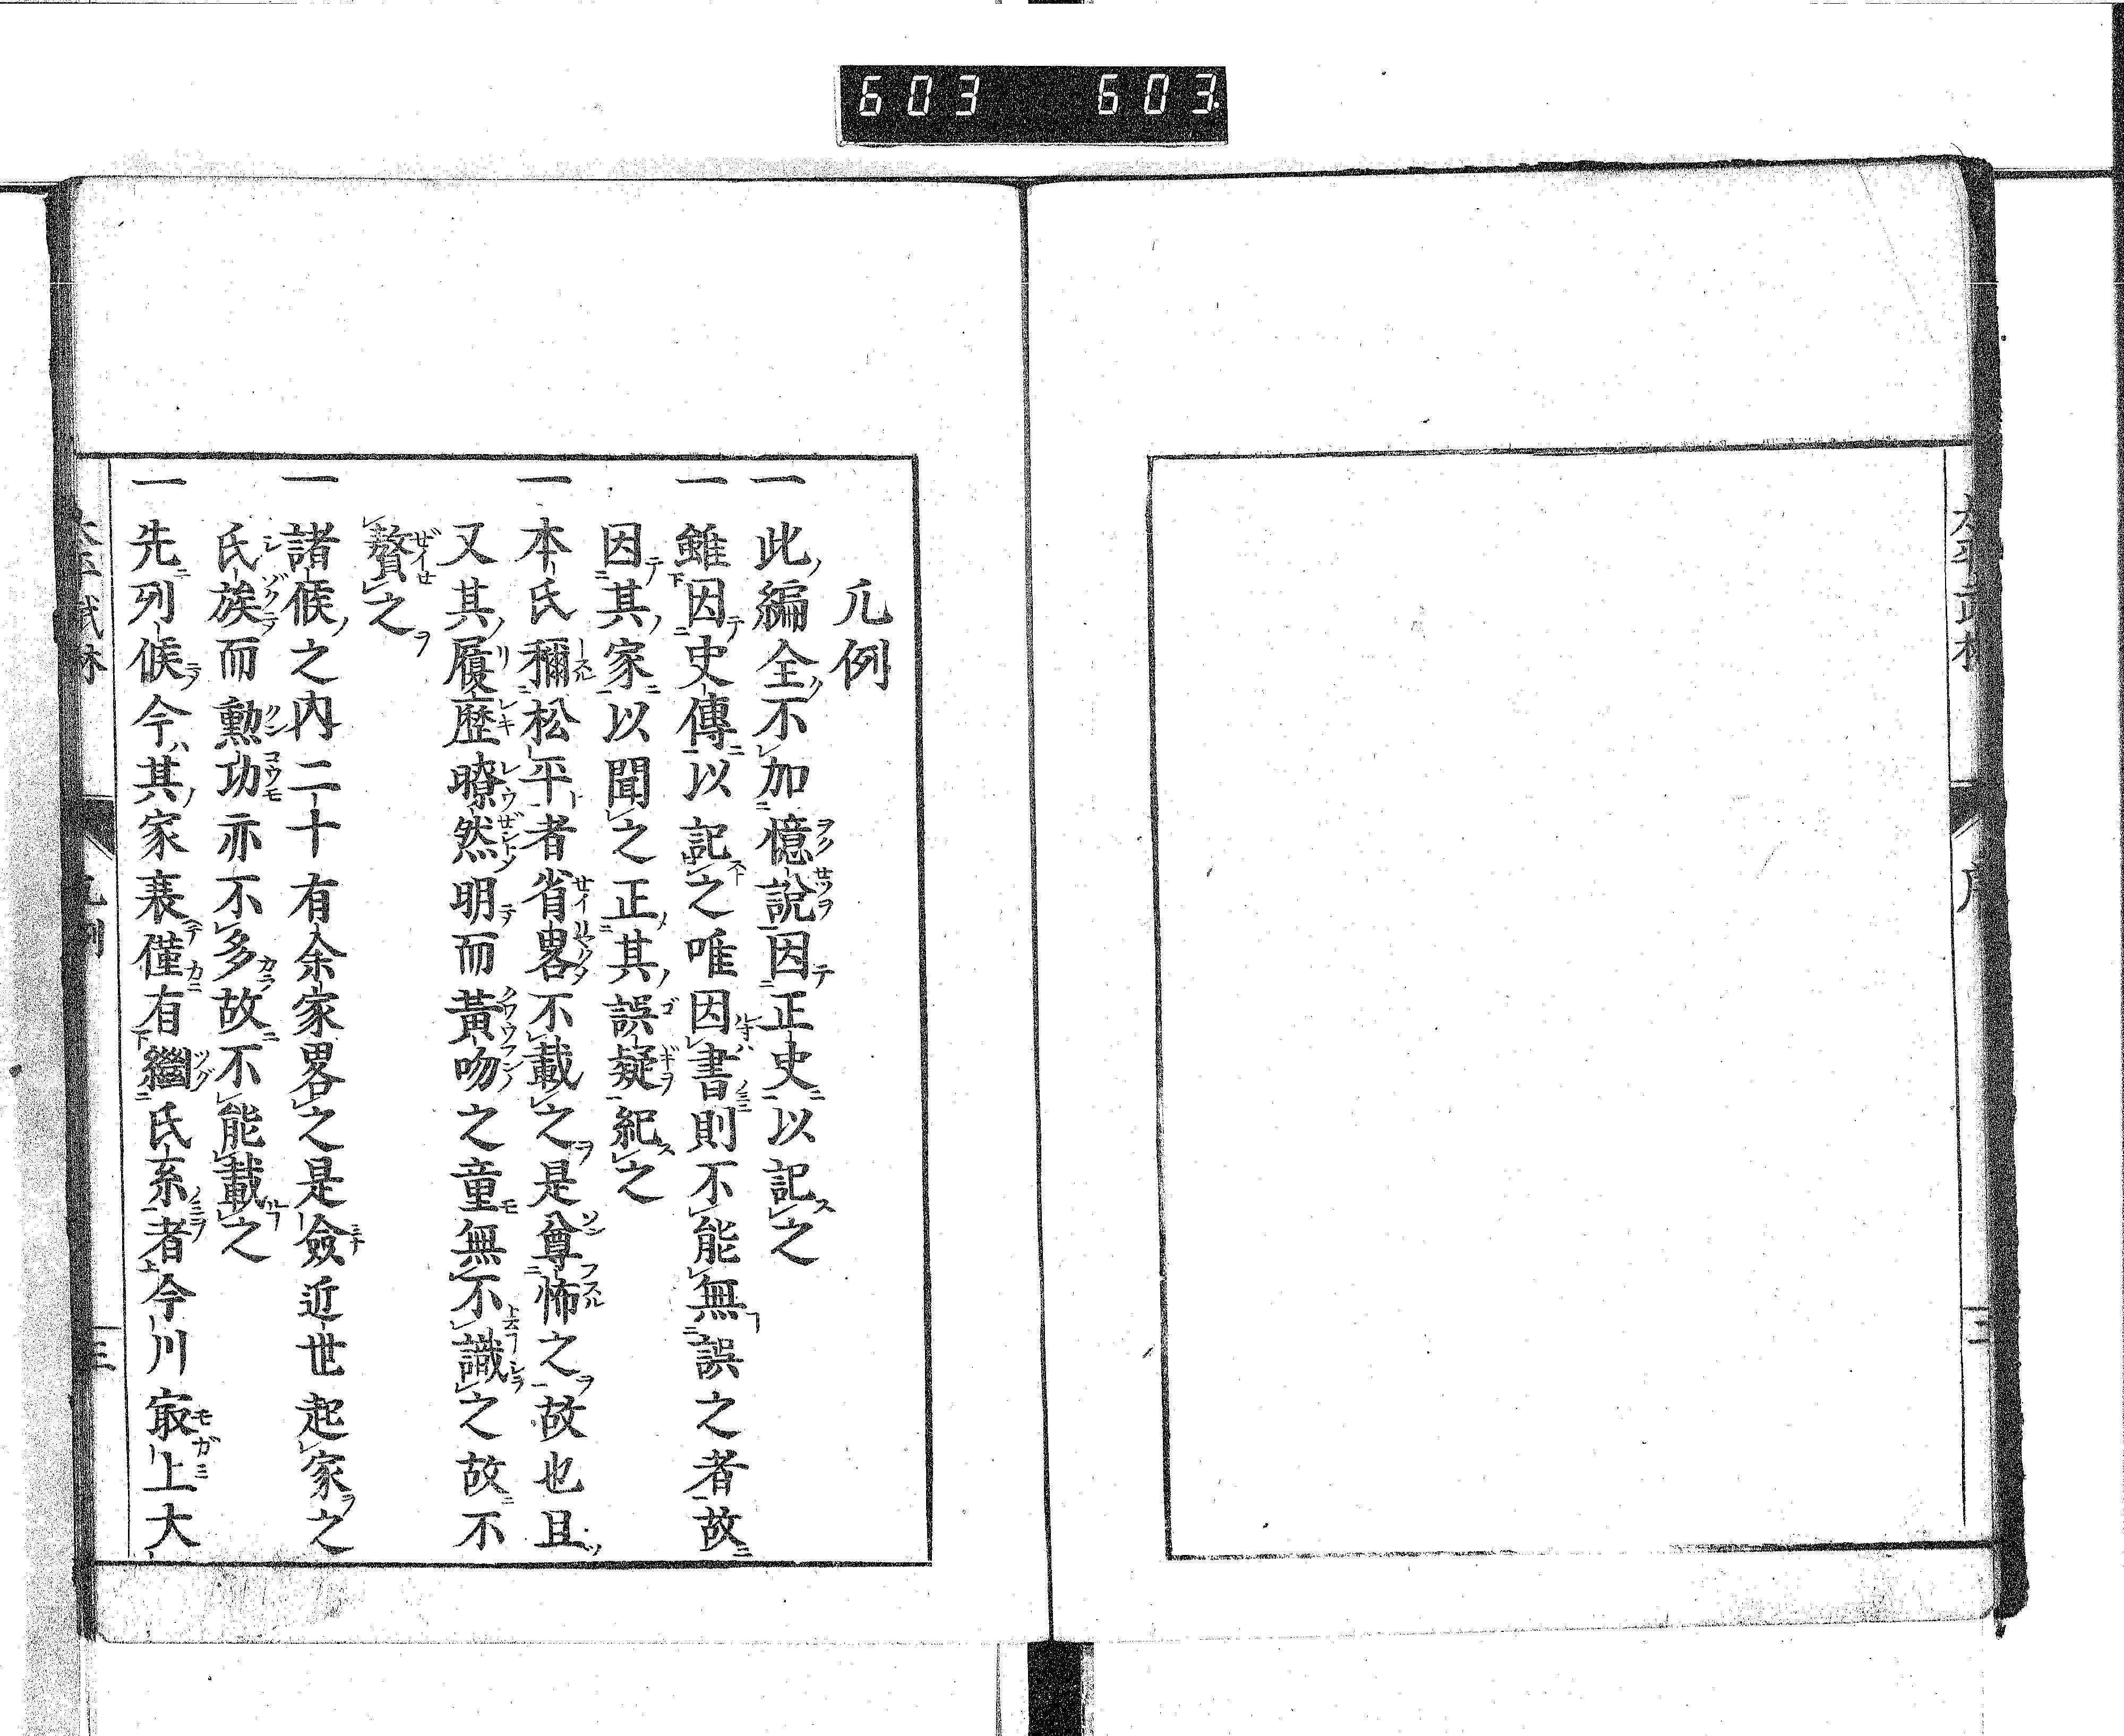 603 603
凡例
一此編全不加憶説因正史以記之
一雖因史傳以記之唯因書則不能無誤之者故
因其家以聞之正其誤疑紀之
一本氏稱松平者省畧不載之是尊怖之故也且
又其履歴暸然明而黃吻之童無不識之故不
贅之
一諸侯之内二十有余家畧之是僉近世起家之
氏族而勲功亦不多故不能載之
一先列侯今其家衰僅有繼氏系者今川最上大
三